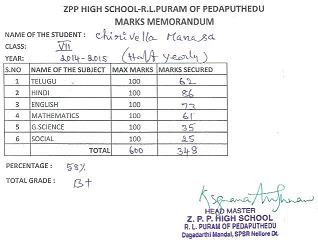 ZPP HIGH SCHOOL-R.L.PURAM OF PEDAPUTHEDU
MARKS MEMORANDUM
NAME OF THE STUDENT : Chirivella Manasa
CLASS: VII
YEAR: 2014-2015 (Half yearly)
S.NO NAME OF THE SUBJECT MAX MARKS MARKS SECURED
1 TELUGU 100 62
2 HINDI 100 86
3 ENGLISH 100
4 MATHEMATICS 100 61
5 G.SCIENCE 100 35
6 SOCIAL 100 25
TOTAL 600 348
PERCENTAGE : 58%
TOTAL GRADE : B+
HEAD MASTER
Z. P. P. HIGH SCHOOL
R. L. PURAM OF PEDAPUTHEDU
Dagadarthi Mandal, SPSR Nellore Dt.